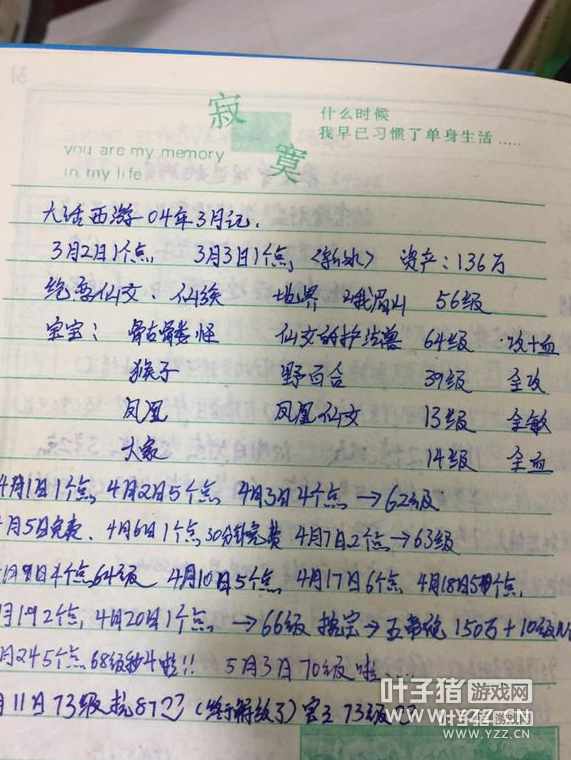 寂寞
什么时候
我早已习惯了单身生活.....
you are my memory
in my life
大话西游 04年3月记.
3月2日1个点, 3月3日1个点, 资产:136万
仙女:仙族 地界 峨眉山 56级
宝宝:骷髅怪 仙女的护法兽 64级 攻+血
猴子 野百合 39级 全攻
凤凰 凤凰仙女 13级 全敏
大象 14级 全血
4月1日1个点, 4月2日5个点, 4月3日4个点→62级
月5日免费, 4月6日1个点,30分钟免费 4月7日2个点→63级
月9日4个点,64级 4月10日5个点, 4月17日6个点, 4月18日5个点,
月19 2个点, 4月20日1个点→66级 →五常袍 150万+10级
月24 5个点,68级秒斗啦!! 5月3日70级啦
月11日73级 (终于解放了) 宝宝73级
叶子猪 游戏网
WWW.YZZ.CN